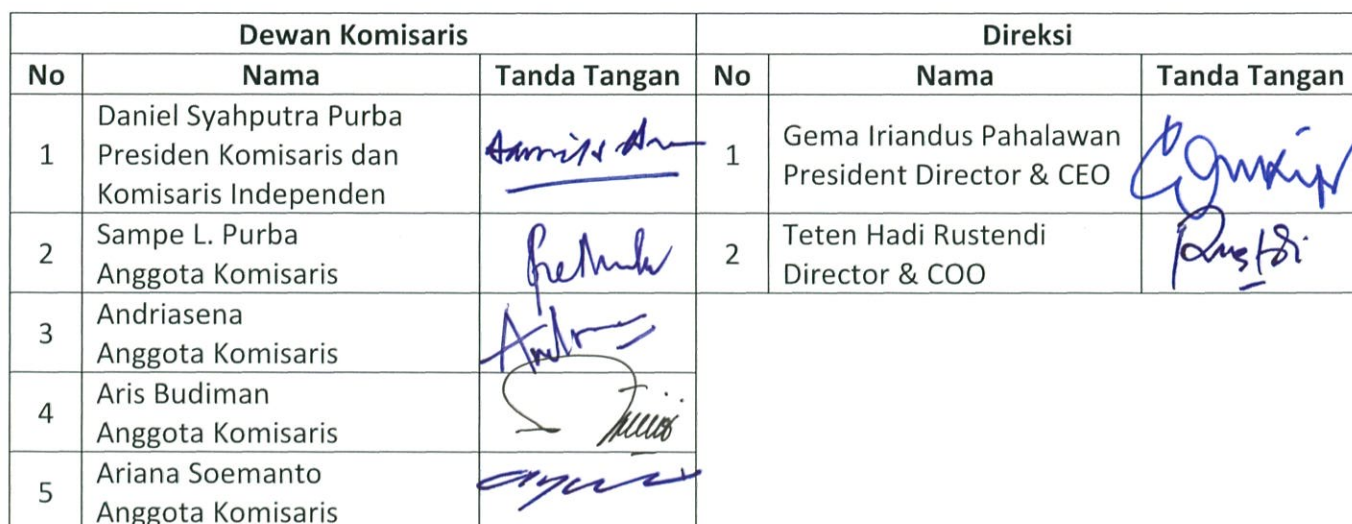 Dewan Komisaris
Direksi
No
Nama
Tanda Tangan
No
Nama
Tanda Tangan
1
Daniel Syahputra Purba
Presiden Komisaris dan
Komisaris Independen
1
Gema Iriandus Pahalawan
President Director & CEO
2
Sampe L. Purba
Anggota Komisaris
2
Teten Hadi Rustendi
Director & COO
3
Andriasena
Anggota Komisaris
4
Aris Budiman
Anggota Komisaris
5
Ariana Soemanto
Anggota Komisaris